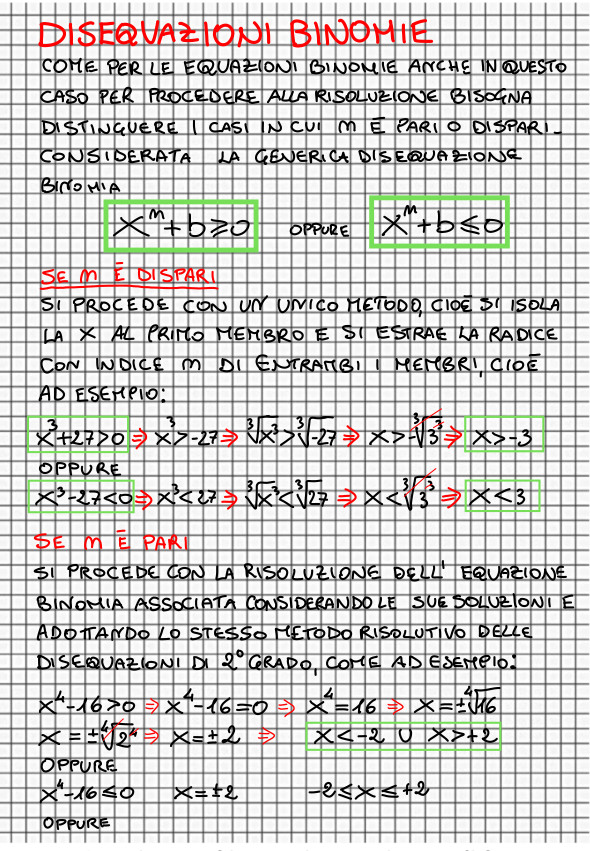 DISEQUAZIONI BINOMIE
COME PER LE EQUAZIONI BINOMIE ANCHE IN QUESTO
CASO PER PROCEDERE ALLA RISOLUZIONE BISOGNA
DISTINGUERE I CASI IN CUI m È PARI O DISPARI.
CONSIDERATA LA GENERICA DISEQUAZIONE
BINOMIA
x^m+b≥0 OPPURE x^m+b≤0
SE m È DISPARI
SI PROCEDE CON UN UNICO METODO, CIOÈ SI ISOLA
LA X AL PRIMO MEMBRO E SI ESTRAE LA RADICE
CON INDICE m DI ENTRAMBI I MEMBRI, CIOÈ
AD ESEMPIO:
x³+27>0 ⇒ x³>-27 ⇒ ∛x³>∛-27 ⇒ x>-∛3³ ⇒ x>-3
OPPURE
x³-27<0 ⇒ x³<27 ⇒ ∛x³<∛27 ⇒ x<∛3³ ⇒ x<3
SE m È PARI
SI PROCEDE CON LA RISOLUZIONE DELL' EQUAZIONE
BINOMIA ASSOCIATA CONSIDERANDO LE SUE SOLUZIONI E
ADOTTANDO LO STESSO METODO RISOLUTIVO DELLE
DISEQUAZIONI DI 2° GRADO, COME AD ESEMPIO:
x⁴-16>0 ⇒ x⁴-16=0 ⇒ x⁴=16 ⇒ x=±∜16
x=±∜2⁴ ⇒ x=±2 ⇒ x<-2 ∪ x>+2
OPPURE
x⁴-16≤0 x=±2 -2≤x≤+2
OPPURE